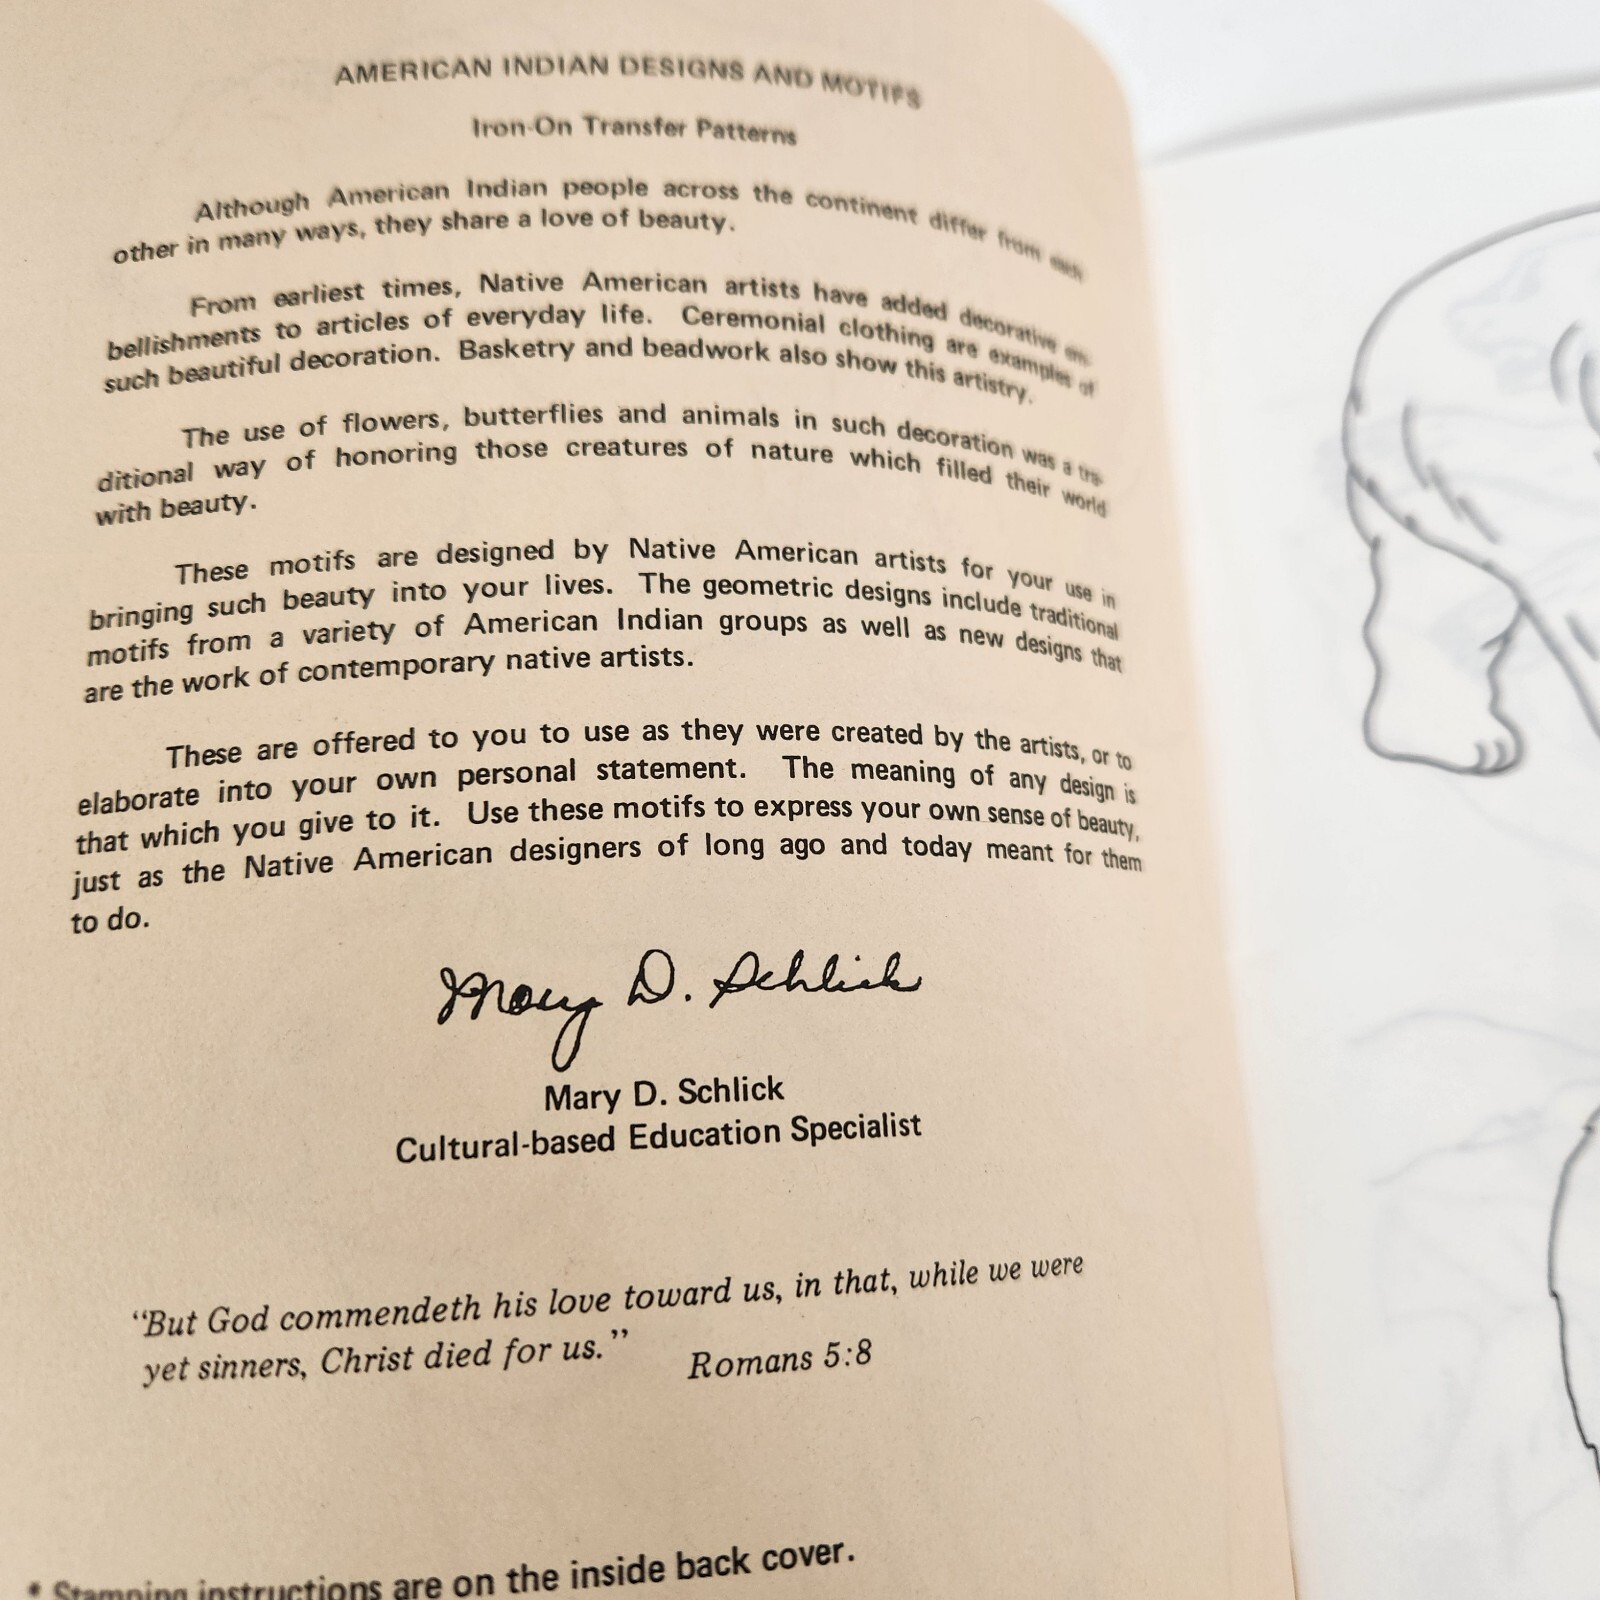 AMERICAN INDIAN DESIGNS AND MOTIFS
Iron-On Transfer Patterns
Although American Indian people across the continent differ from each
other in many ways, they share a love of beauty.
From earliest times, Native American artists have added decorative em-
bellishments to articles of everyday life. Ceremonial clothing are examples of
such beautiful decoration. Basketry and beadwork also show this artistry.
The use of flowers, butterflies and animals in such decoration was a tra-
ditional way of honoring those creatures of nature which filled their world
with beauty.
These motifs are designed by Native American artists for your use in
bringing such beauty into your lives. The geometric designs include traditional
motifs from a variety of American Indian groups as well as new designs that
are the work of contemporary native artists.
These are offered to you to use as they were created by the artists, or to
elaborate into your own personal statement. The meaning of any design is
that which you give to it. Use these motifs to express your own sense of beauty,
just as the Native American designers of long ago and today meant for them
to do.
Mary D. Schlick
Mary D. Schlick
Cultural-based Education Specialist
“But God commendeth his love toward us, in that, while we were
yet sinners, Christ died for us.” Romans 5:8
* Stamping instructions are on the inside back cover.